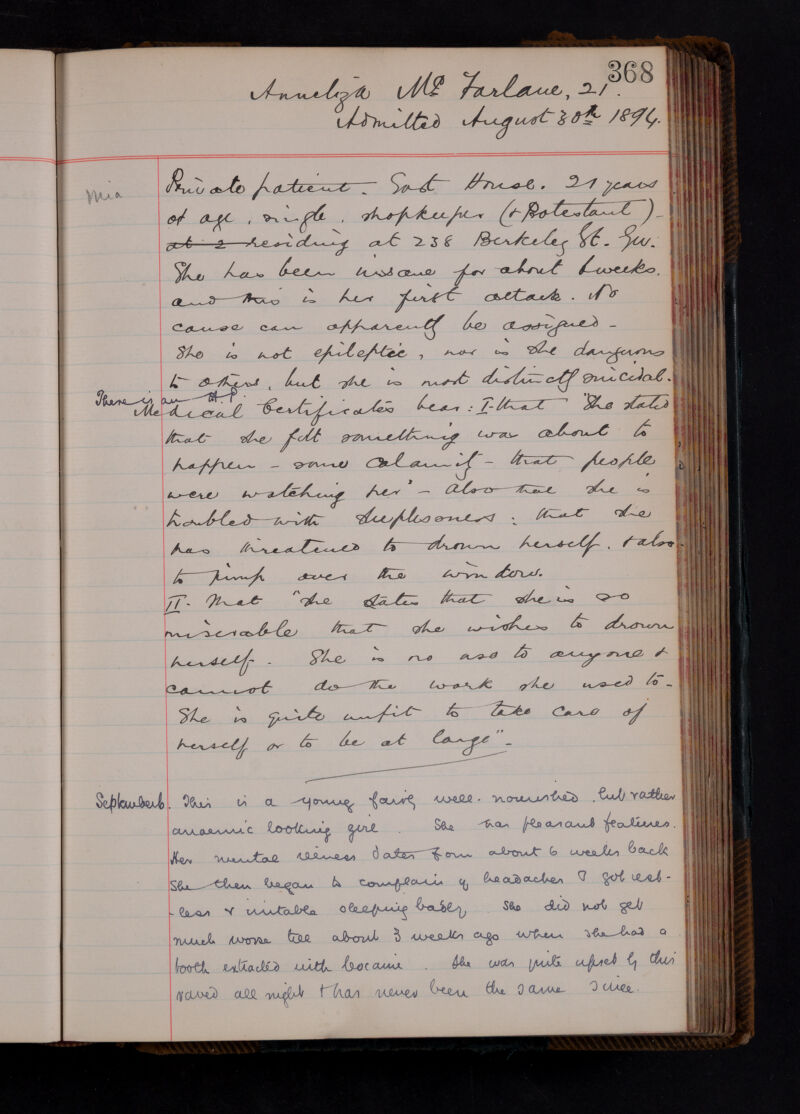 368
Anneliza McFarlane, 21.
Admitted August 30th 1894.
Mia
Private patient. East House. 21 years
of age, single, shopkeeper (& Protestant) -
at 2 residing at 238 Berkeley St. Gw.
She has been insane for about 6 weeks.
and this is her first attack. No
cause can apparently be assigned -
She is not epileptic, nor is she dangerous
to others, but she is most distinctly suicidal.
There is an H.P.
Medical Certificates bear: I. that "She stated
that she felt something was about to
happen - some calamity - that people
were watching her" - also that she is
troubled with sleeplessness: that she
has threatened to drown herself, & also
to jump over the window.
II. That "she states that she is so
miserable that she wishes to drown
herself. She is no use to anyone &
cannot do the work she used to -
She is quite unfit to take care of
herself or to be at large" -
September 6. This is a young fairly well-nourished, but rather
anaemic looking girl. She has pleasant features.
Her mental illness dates from about 6 weeks back
She then began to complain of headaches & got rest-
-less & irritable sleeping badly. She did not get
much worse till about 3 weeks ago when she had a
tooth extracted with Cocaine. She was quite upset by this
raved all night & has never been the same since.